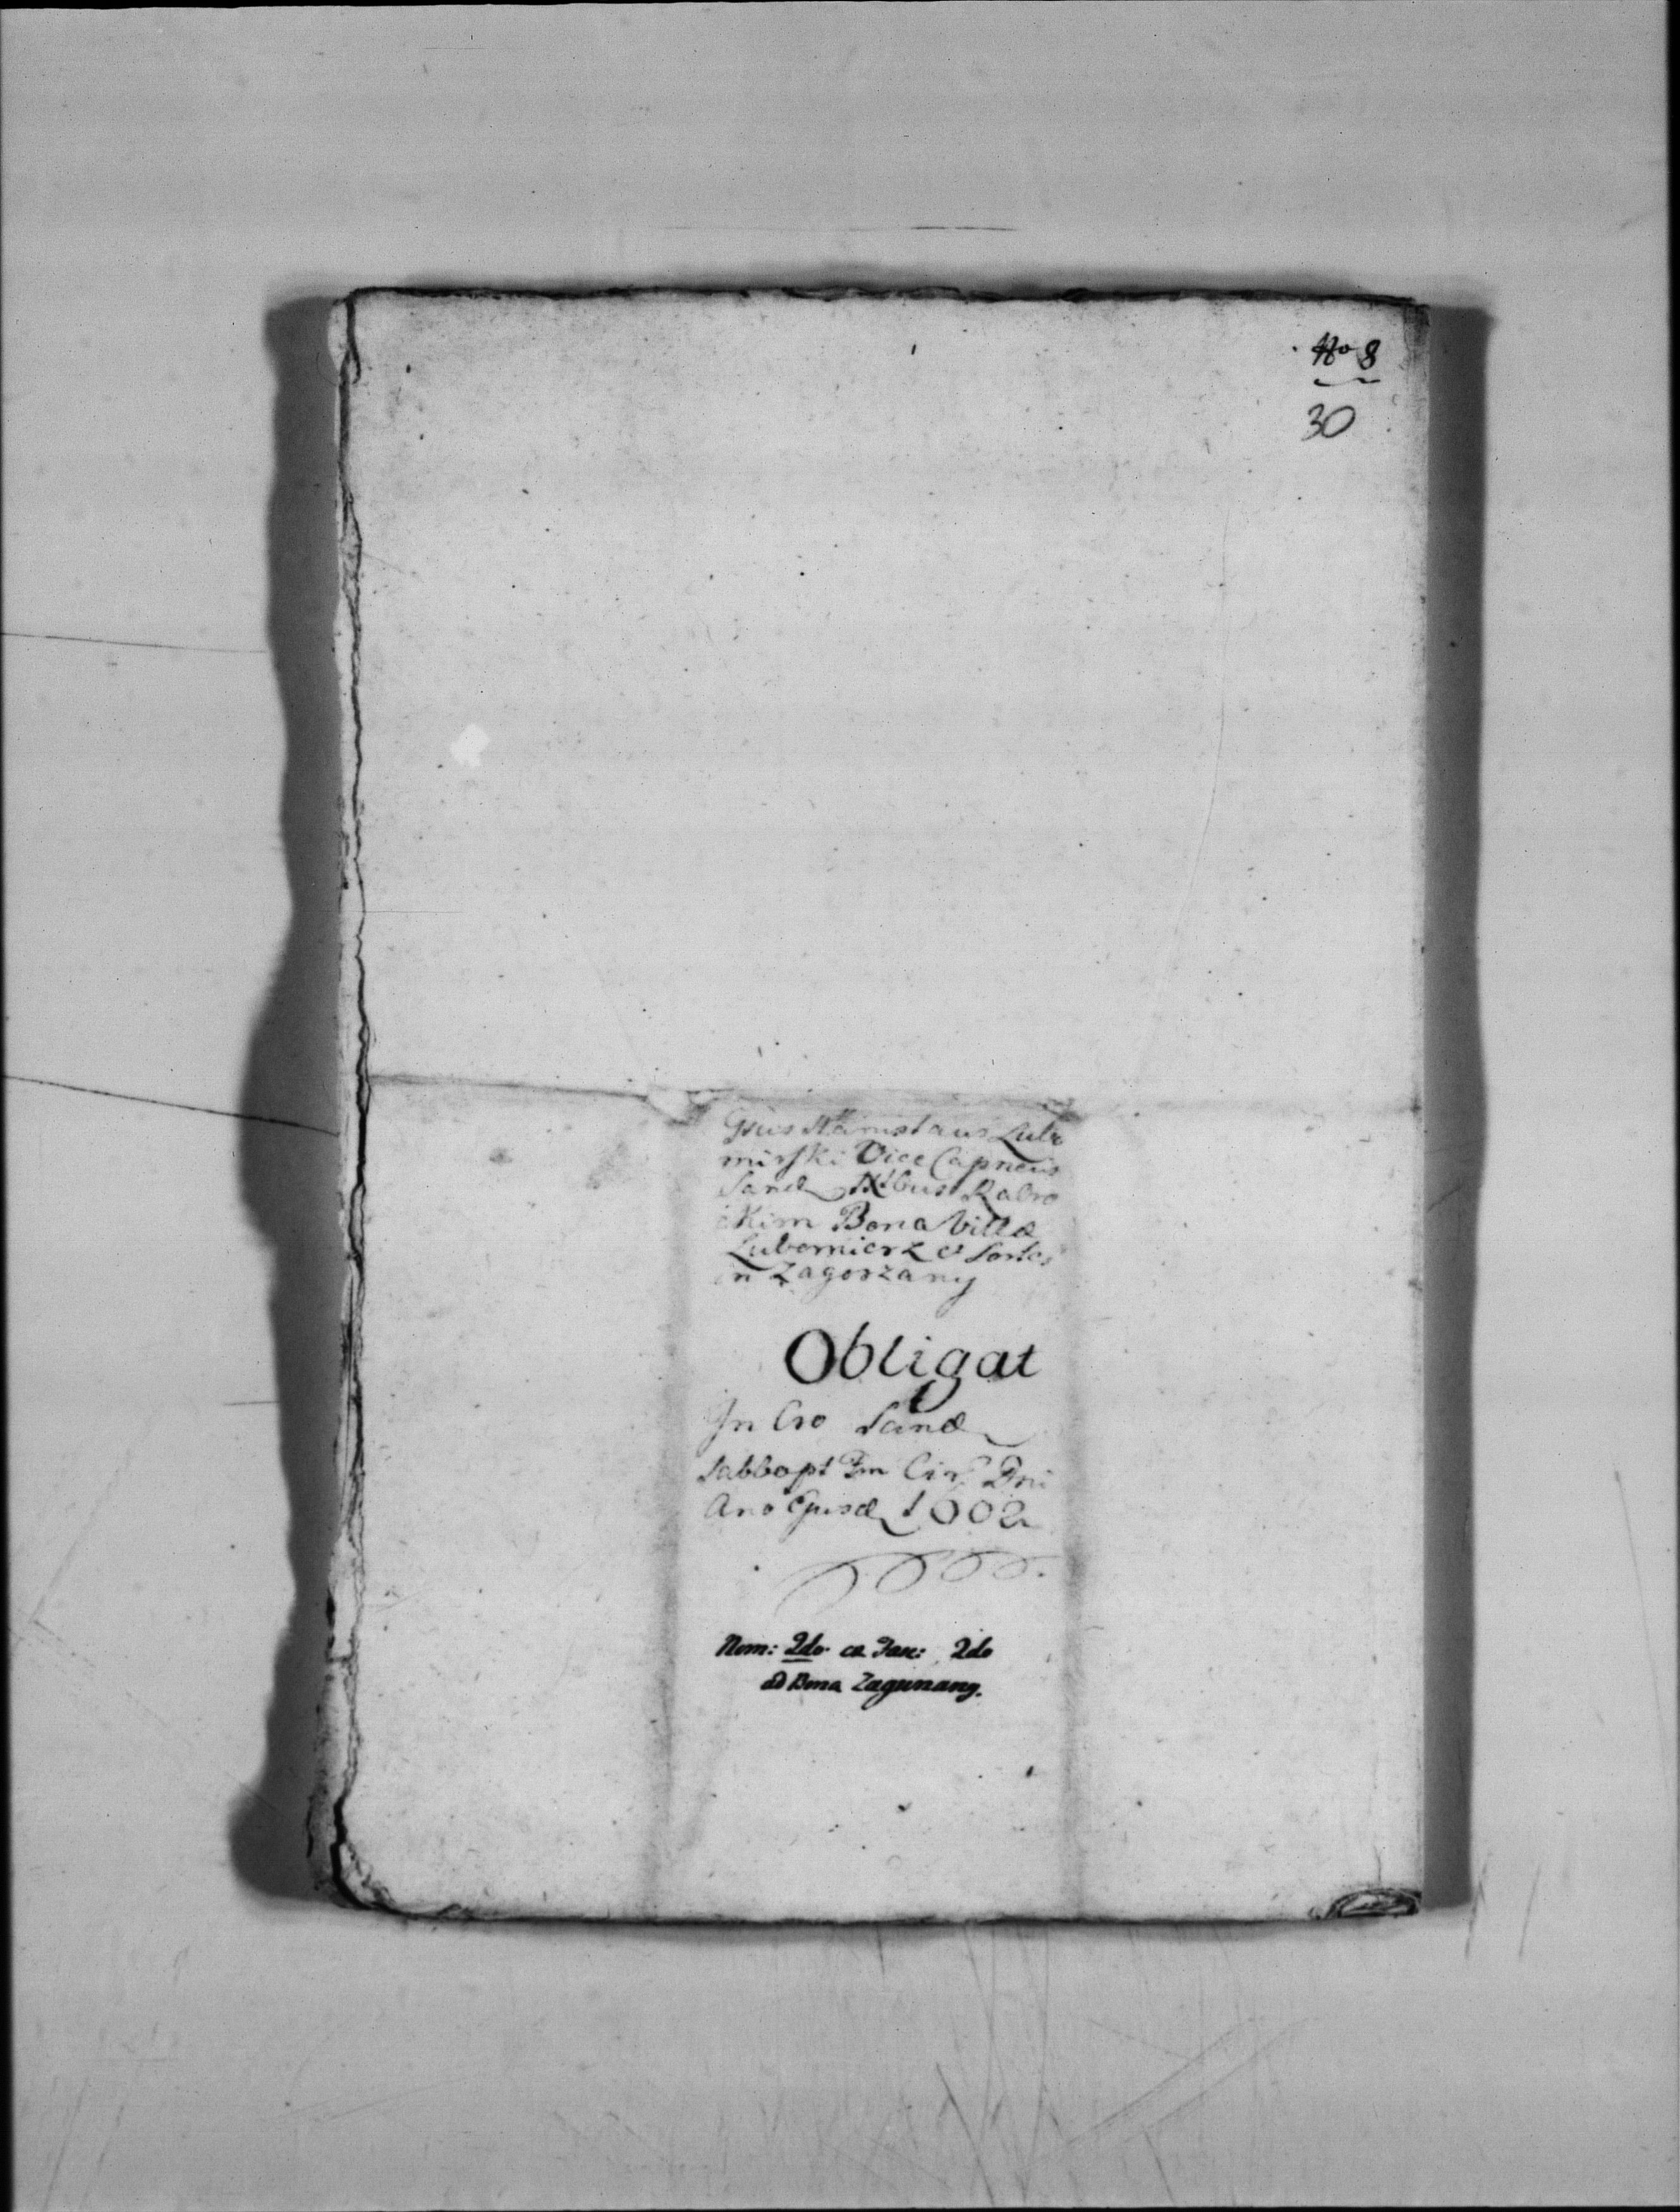 No 8
30
Gsus Stanislaus Lubo
mirski Vice Capneus
Sand Xtbus Rabro
ckim Bona Villa
Lubomierz et Sortes
in Zagorzany
Obligat
In Cro Sand
Sabbo pt Fm Circ Dni
Ano Ejusd 1602
Nom: 2do ex Fasc: 2do
ad Bona Zagorzany.